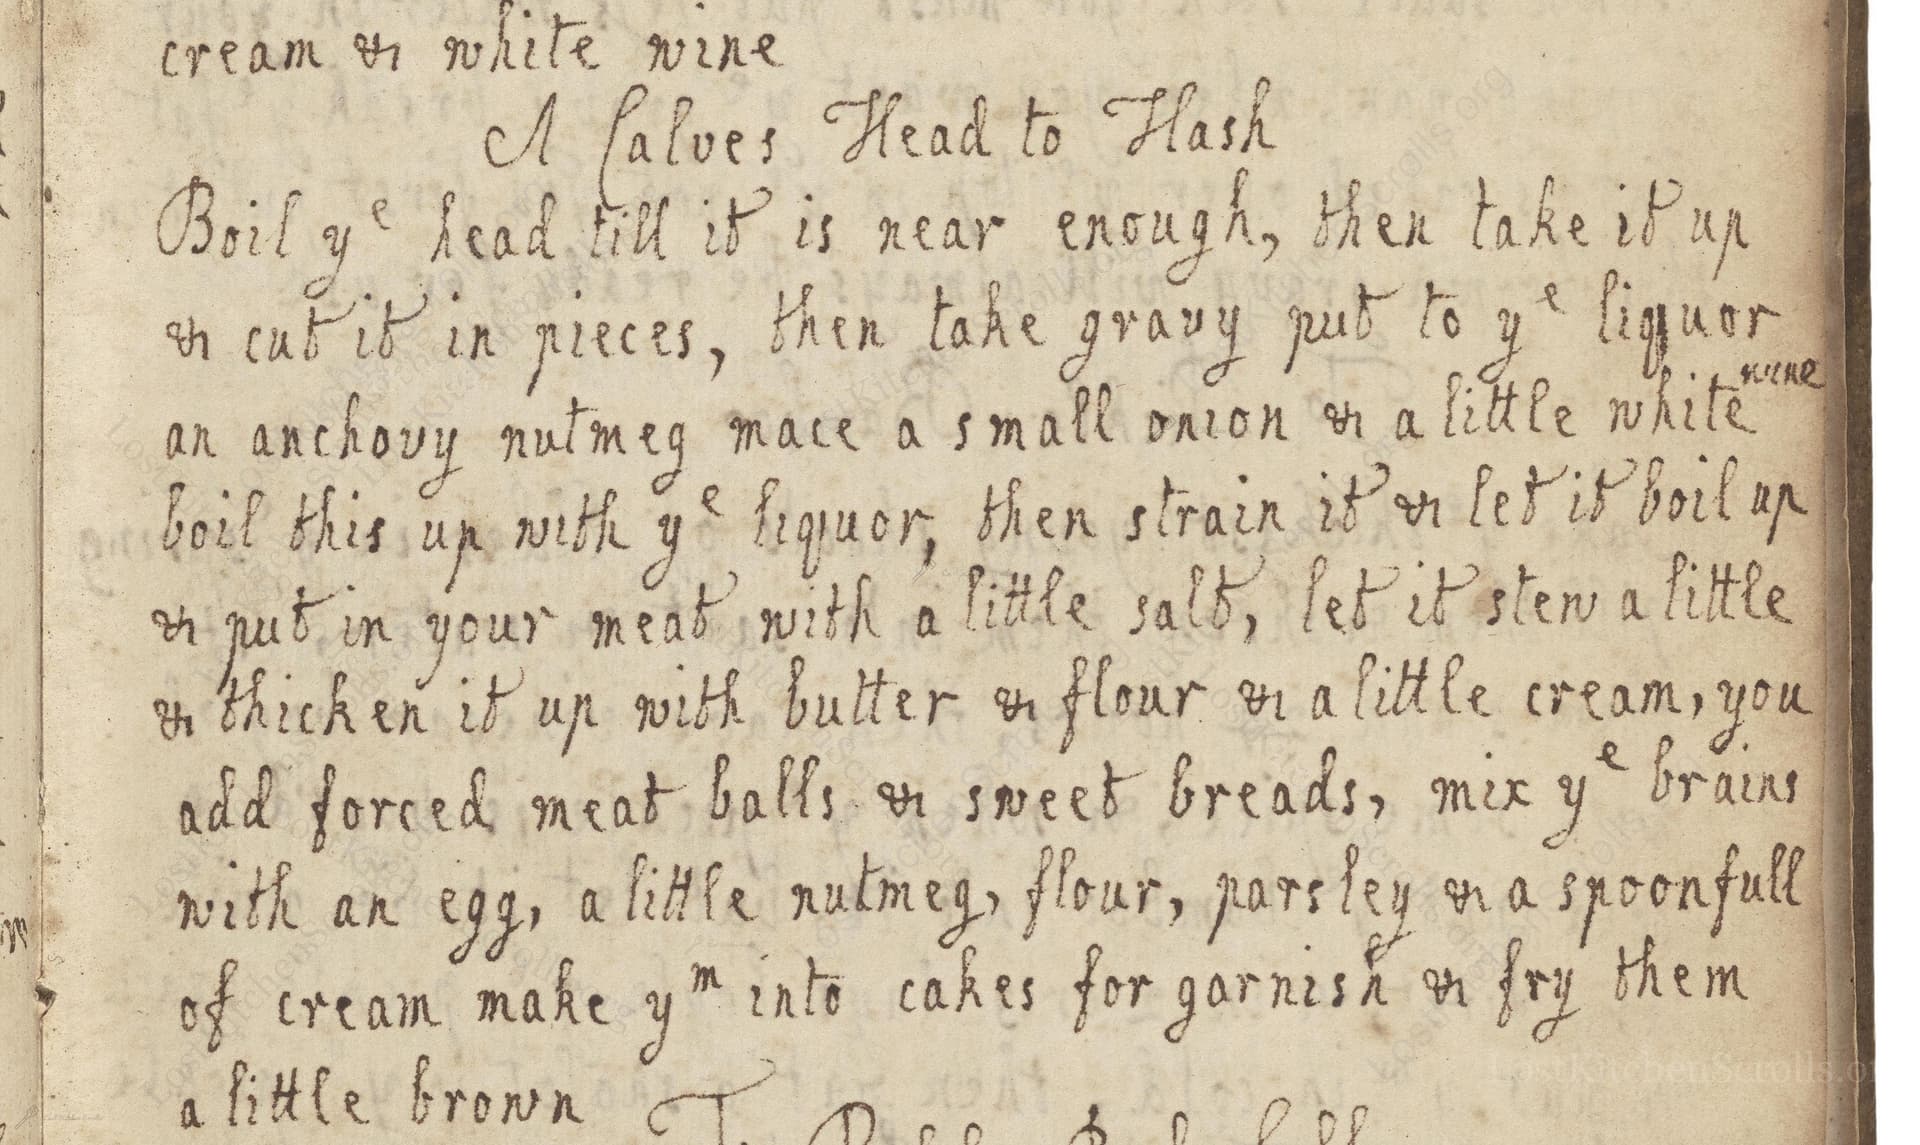 cream & white wine
A Calves Head to Hash
Boil yᵉ head till it is near enough, then take it up
& cut it in pieces, then take gravy put to yᵉ liquor
an anchovy nutmeg mace a small onion & a little white wine
boil this up with yᵉ liquor, then strain it & let it boil up
& put in your meat with a little salt, let it stew a little
& thicken it up with butter & flour & a little cream, you
add forced meat balls & sweet breads, mix yᵉ brains
with an egg, a little nutmeg, flour, parsley & a spoonfull
of cream make yᵐ into cakes for garnish & fry them
a little brown
LostKitchenScrolls.org